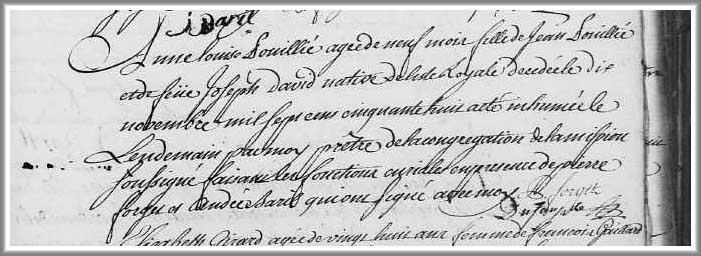 Anne Louise Douillié agée de neuf mois fille de Jean Douillié
et de feüe Joseph David native de lisle Royale decedée le dix
novembre mil sept cens cinquante huit a eté inhumée le
Lendemain par moy prêtre de la congregation de la mission
soussigné faisant les fonctions curialles en presence de pierre
forget et andré Baril qui ont signé avec moy forgett
Elizabeth Girard agée de vingt huit ans femme de francois Gaillard